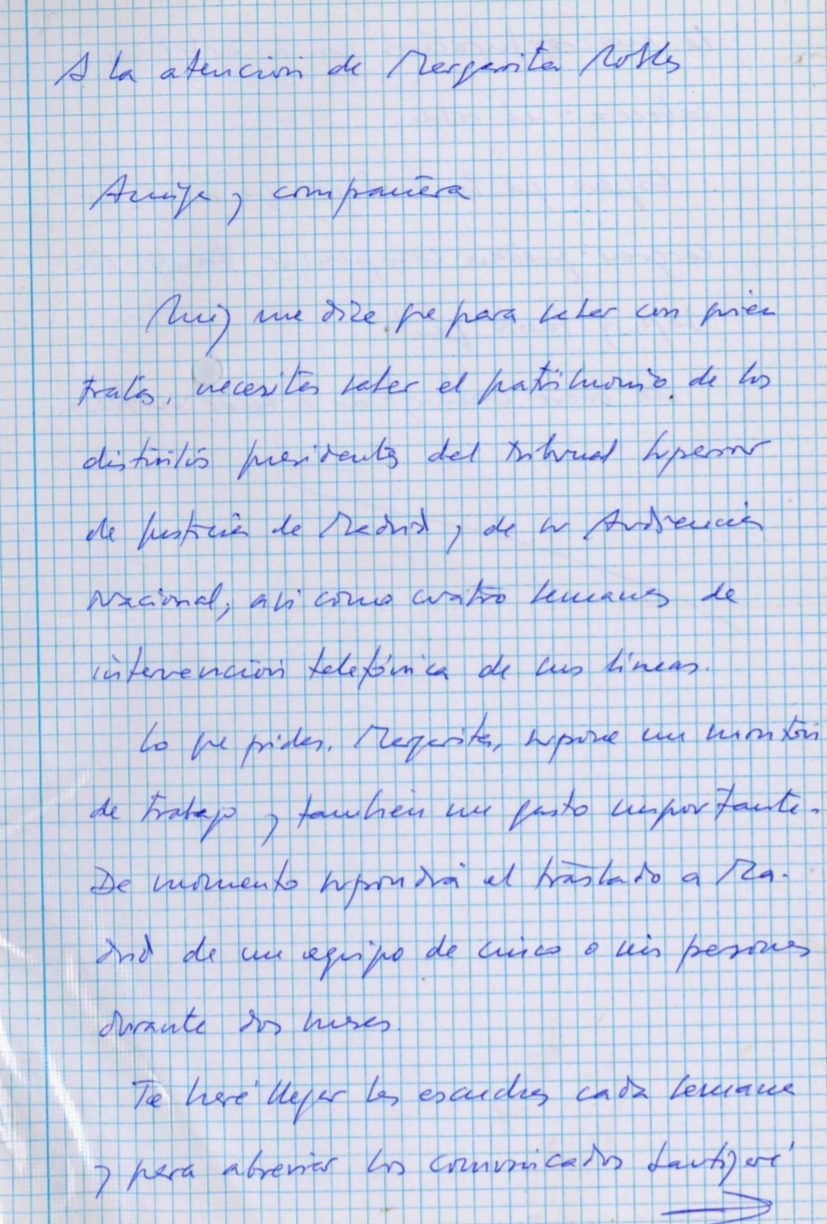 A la atención de Margarita Robles
Amiga y compañera
Luis me dice que para saber con quien
tratas, necesitas saber el patrimonio de los
distintos presidentes del Tribunal Superior
de Justicia de Madrid y de su Audiencia
Nacional, asi como cuatro semanas de
intervención telefónica de sus lineas.
Lo que pides, Margarita, supone un montón
de trabajo y también un gasto importante.
De momento supondrá el traslado a Ma-
drid de un equipo de cinco o seis personas
durante dos meses.
Te haré llegar las escuchas cada semana
y para abreviar los comunicados